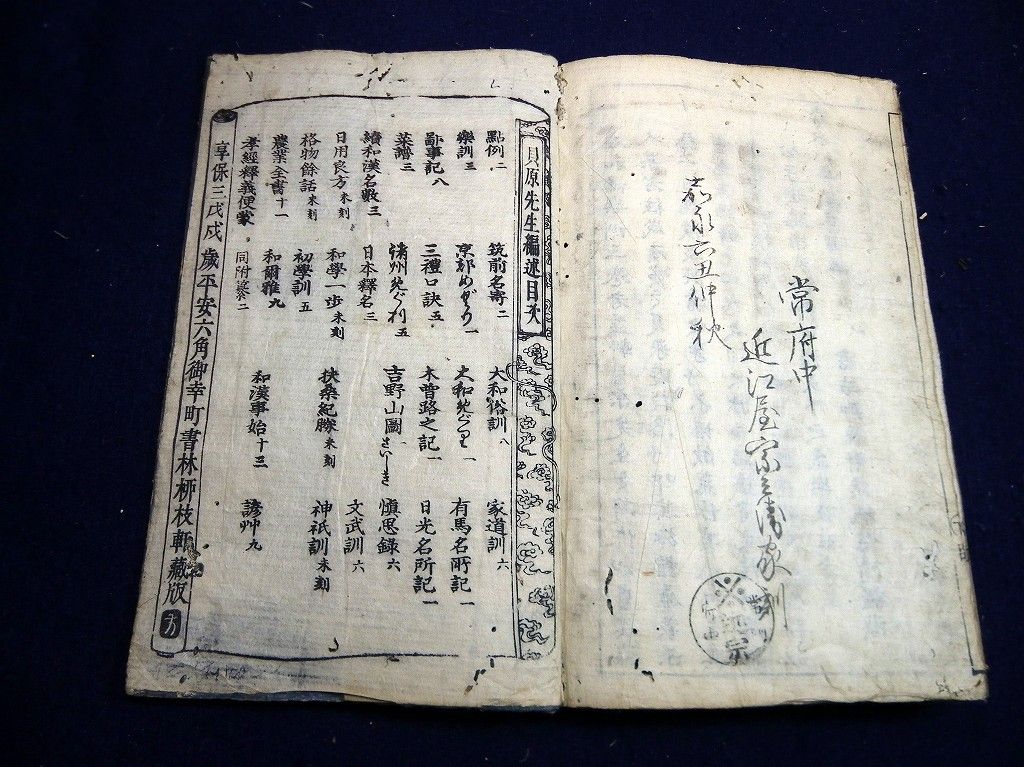 嘉永六丑仲秋
常府中
近江屋宗兵衛
貝原先生編述目次
點例 二
筑前名寄 二
大和俗訓 八
家道訓 六
樂訓 三
京都めぐり 一
大和めぐり 一
有馬名所記 一
鄙事記 八
三禮口訣 五
木曽路之記 一
日光名所記 一
菜譜 三
諸州めぐり 五
吉野山圖 さいしき
愼思録 六
續和漢名數 三
日本釋名 三
文武訓 六
日用良方 未刻
和學一歩 未刻
扶桑紀勝 未刻
神祇訓 未刻
格物餘話 未刻
初學訓 五
農業全書 十一
和爾雅 九
和漢事始 十三
諺艸 九
孝經釋義便蒙 同附纂 二
享保三戊戌歳平安六角御幸町書林栁枝軒藏版